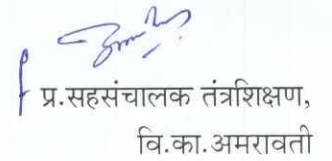 प्र.सहसंचालक तंत्रशिक्षण,
वि.का.अमरावती